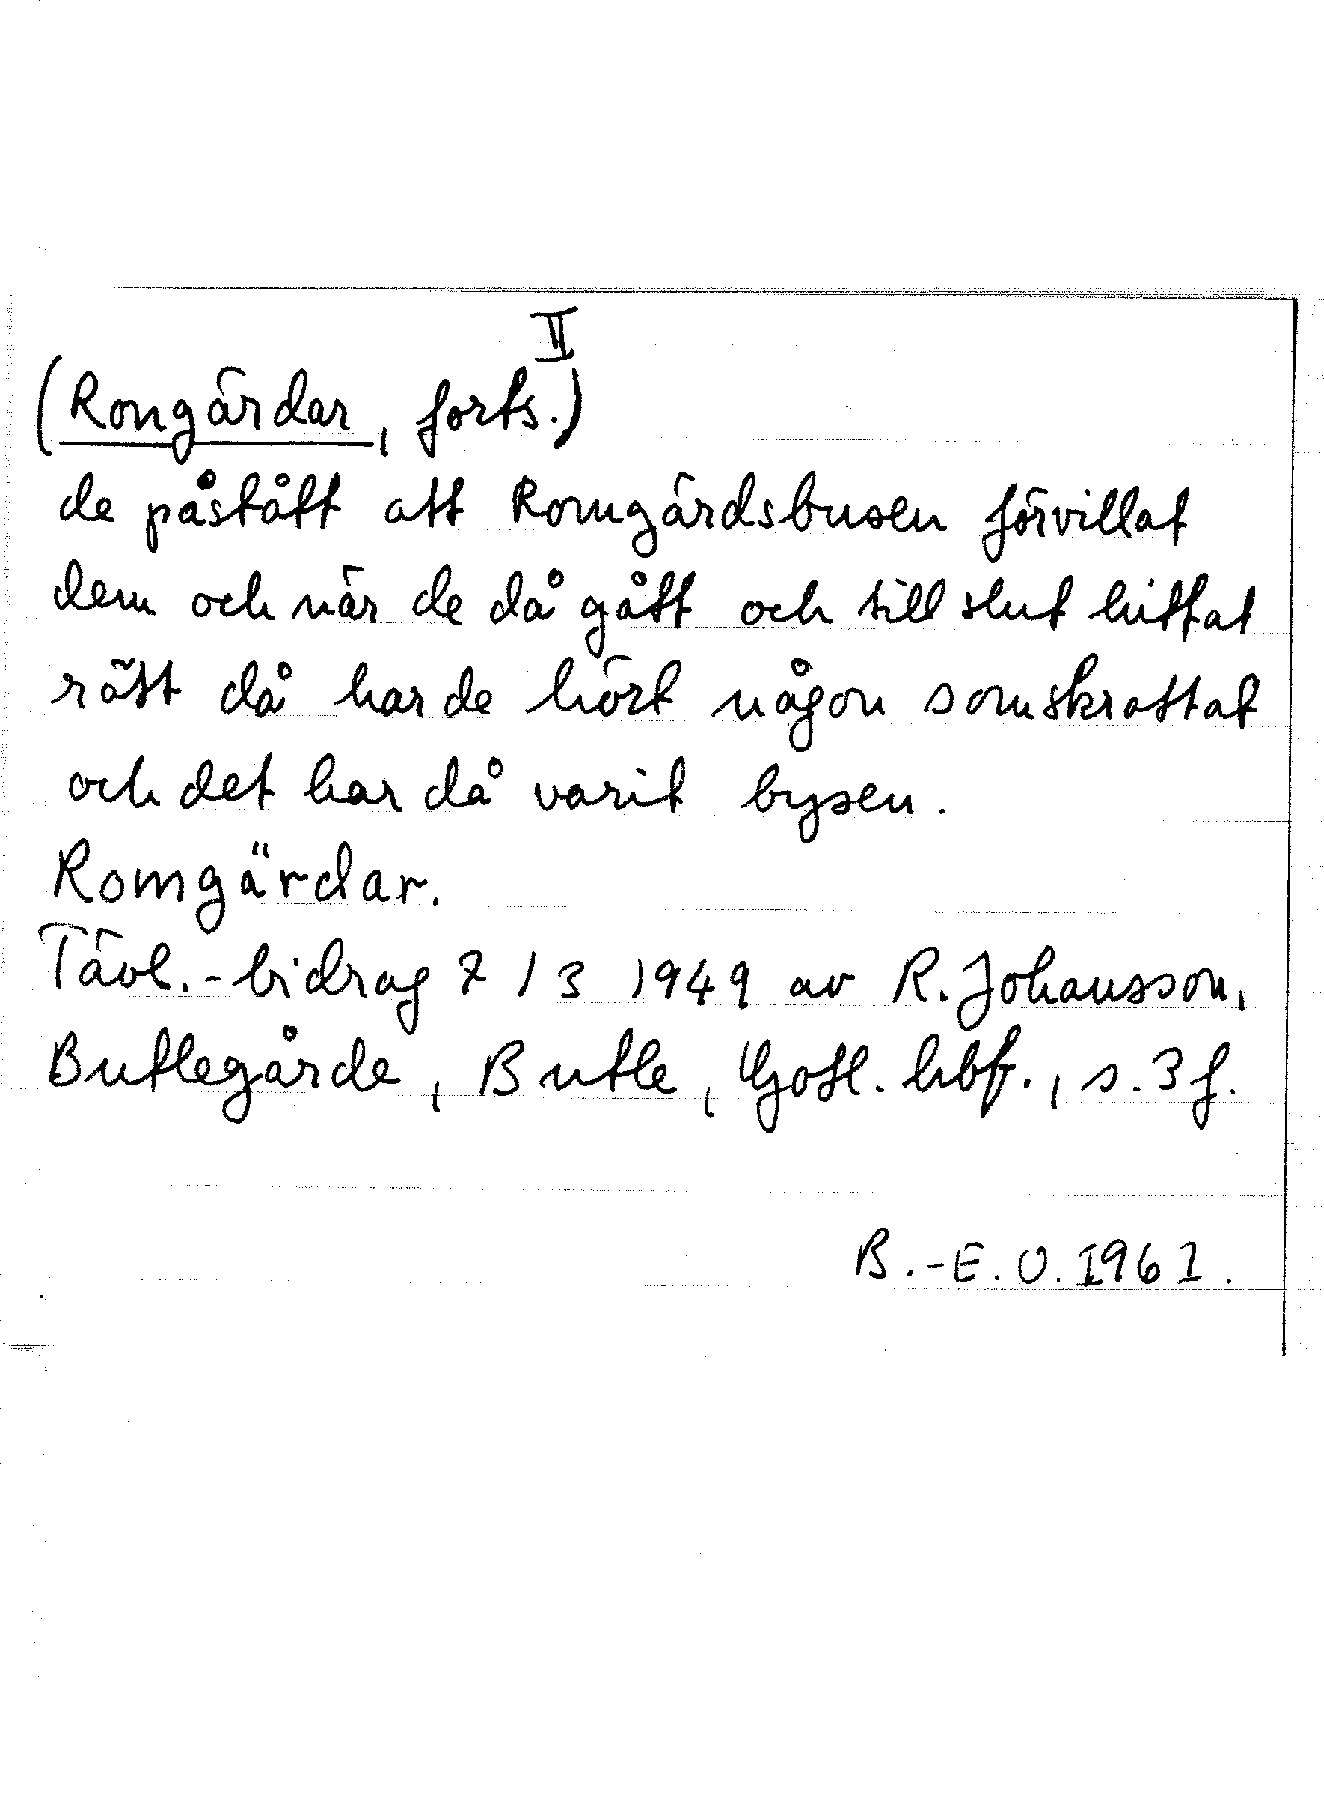 II
(Romgärdar, forts.)
de påstått att Romgärdsbusen förvillat
dem och när de då gått och till slut hittat
rätt då har de hört någon som skrattat
och det har då varit bysen.
Romgärdar.
Tävl.-bidrag 7/3 1949 av R. Johansson,
Buttlegårde, Buttle, Gotl. hbf., s. 3 f.
B.-E. O. 1961.